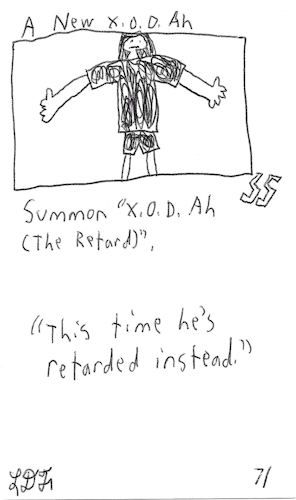 A New X.O.D. Ah
SS
Summon "X.O.D. Ah
(The Retard)",
"This time he's
retarded instead."
7/